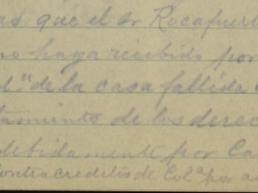 as que el sr Rocafuert
no haya recibido por
de la casa fallida
tamiento de los derec
debidamente por Ca
contracreditos de Col.ª por a